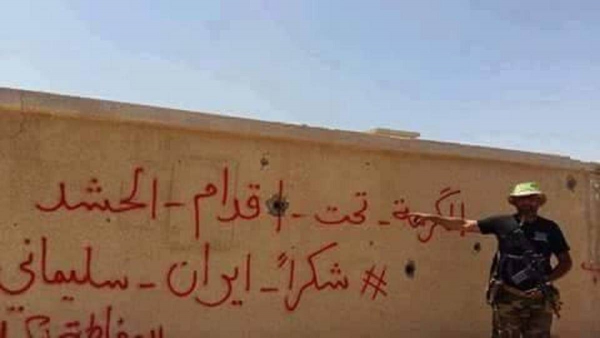 الگرمة - تحت - اقدام - الحشد
# شكراً - ايران - سليماني